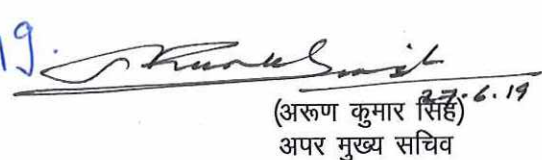 19.
27.6.19
(अरूण कुमार सिंह)
अपर मुख्य सचिव